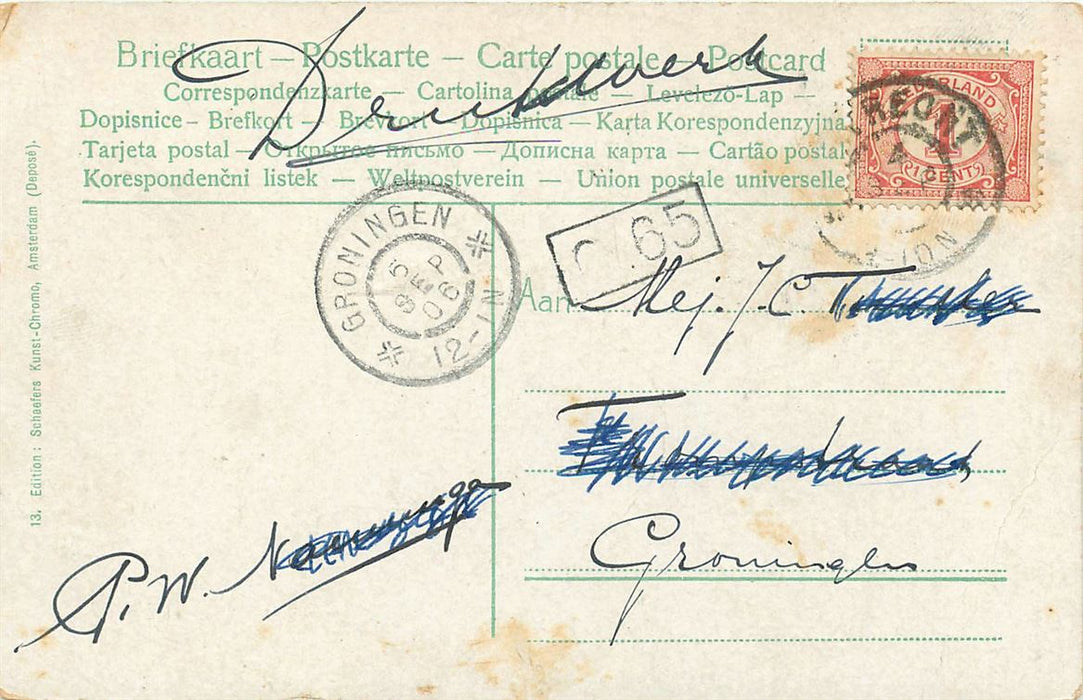 Briefkaart — Postkarte — Carte postale — Postcard
Drukwerk
Correspondenzkarte — Cartolina postale — Levelezö-Lap —
Dopisnice – Brefkort — Brevkort — Dopisnica — Karta Korespondenzyjna
Tarjeta postal — Открытое письмо — Дописна карта — Cartão postal
Korespondenčni listek — Weltpostverein — Union postale universelle
NEDERLAND
1
1 CENT
GRONINGEN
5 SEP 06
12-1N
65
Aan Mej. J. C.
Groningen
P. W.
13. Edition: Schaefers Kunst-Chromo, Amsterdam (Deposé).